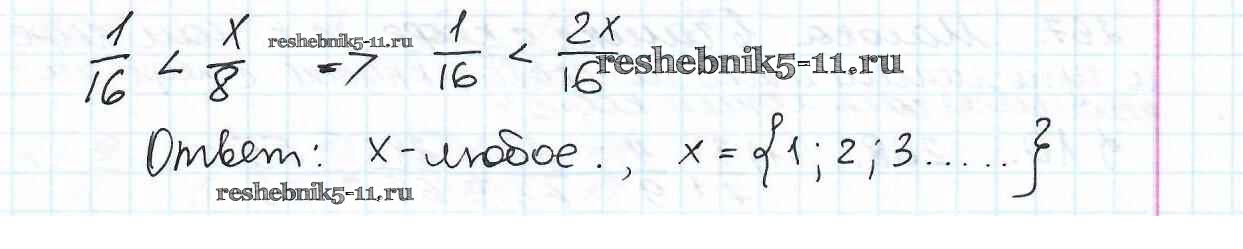 1/16 < x/8 reshebnik5-11.ru => 1/16 < 2x/16 reshebnik5-11.ru
Ответ: x - любое., x = {1; 2; 3.....}
reshebnik5-11.ru